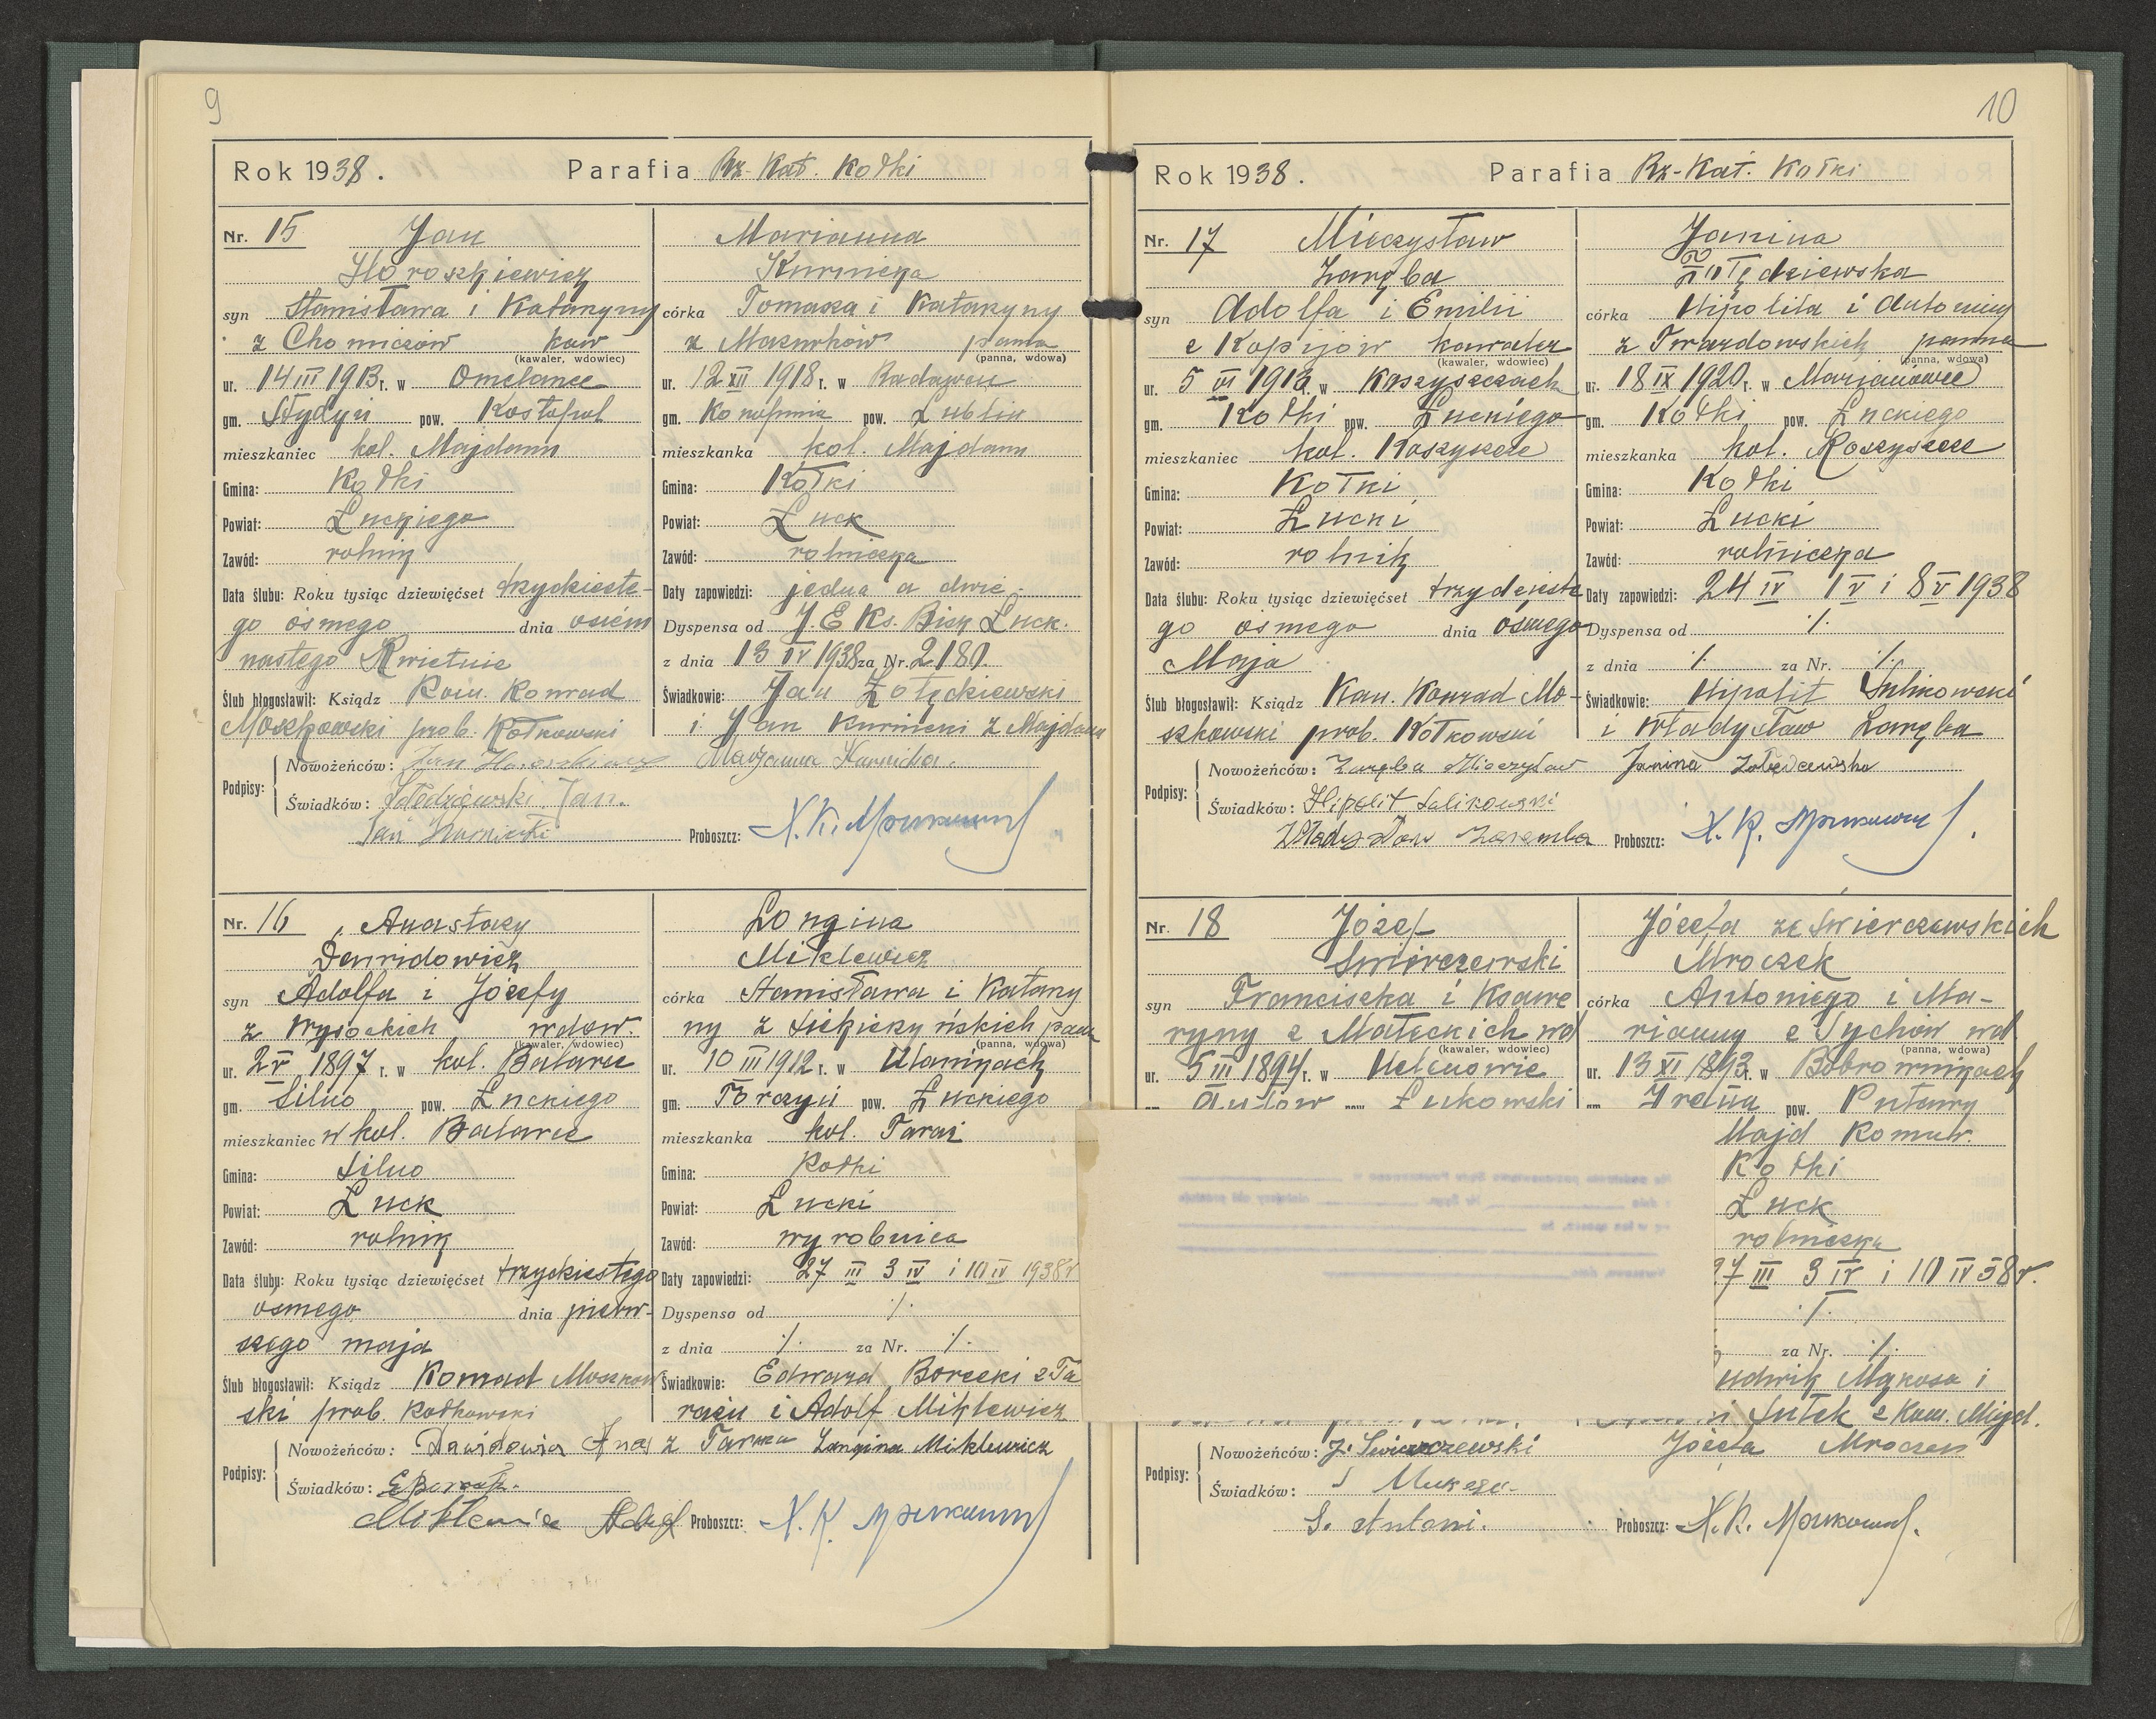 9
Rok 1938. Parafia Rz-Kat. Kołki
Nr. 15 Jan
Horoszkiewicz
syn Stanisława i Katarzyny
z Chomiczów kaw
(kawaler, wdowiec)
ur. 14 III 1913 r. w Omelance
gm. Stydyń pow. Kostopol
mieszkaniec kol. Majdanu
Gmina: Kołki
Powiat: Łuckiego
Zawód: rolnik
Data ślubu: Roku tysiąc dziewięćset trzydzieste-
go ósmego dnia osiem
nastego Kwietnia
Ślub błogosławił: Ksiądz Konrad
Moszkowski prob. Kołkowski
Marianna
Kurnicka
córka Tomasza i Katarzyny
z Mazurków panna
(panna, wdowa)
ur. 12 XII 1918 r. w
gm. Konopnica pow. Lublin
mieszkanka kol. Majdanu
Gmina: Kołki
Powiat: Łuck
Zawód: rolniczka
Daty zapowiedzi: jedna a dwie
Dyspensa od J. E Ks. Bisk Łuck.
z dnia 13 IV 1938 za Nr. 2180.
Świadkowie: Jan
i Jan Kurnicki z Majdanu
Podpisy:
Nowożeńców: Jan Horoszkiewicz Marjanna Kurnicka.
Świadków: Jan.
Jan Kurnicki Proboszcz: X. K. Moszkowski
Nr. 16 Anastazy
Dawidowicz
syn Adolfa i Józefy
z Wysockich wdow.
(kawaler, wdowiec)
ur. 2 V 1897 r. w kol. Batarce
gm. Silno pow. Łuckiego
mieszkaniec w kol. Batarce
Gmina: Silno
Powiat: Łuck
Zawód: rolnik
Data ślubu: Roku tysiąc dziewięćset trzydziestego
ósmego dnia pierw-
szego maja
Ślub błogosławił: Ksiądz Konrad Moszkow
ski prob. Kołkowski
Longina
Miklewicz
córka Stanisława i Katarzy
ny z pann
(panna, wdowa)
ur. 10 III 1912 r. w Ułanikach
gm. Torczyn pow. Łuckiego
mieszkanka kol. Taraż
Gmina: Kołki
Powiat: Łucki
Zawód: wyrobnica
Daty zapowiedzi: 27 III 3 IV i 10 IV 1938 r
Dyspensa od ./.
z dnia ./. za Nr. ./.
Świadkowie: Edward Borecki z Ta
rażu i Adolf Miklewicz
Podpisy:
Nowożeńców: Dawidowicz Longina Miklewicz
Świadków:
Miklewicz Adolf Proboszcz: X. K. Moszkowski
10
Rok 1938. Parafia Rz-Kat. Kołki
Nr. 17 Mieczysław
Zaręba
syn Adolfa i Emilii
z Kopijów kawaler
(kawaler, wdowiec)
ur. 5 VI 1913 w Koszyszczach
gm. Kołki pow. Łuckiego
mieszkaniec kol. Koszyszcze
Gmina: Kołki
Powiat: Łucki
Zawód: rolnik
Data ślubu: Roku tysiąc dziewięćset trzydzieste
go ósmego dnia ósmego
Maja
Ślub błogosławił: Ksiądz Kan. Konrad Mo-
szkowski prob. Kołkowski
Janina
Żołędziewska
córka Hipolita i Antoniny
z Twardowskich panna
(panna, wdowa)
ur. 18 IX 1920 r. w Marjanówce
gm. Kołki pow. Łuckiego
mieszkanka kol. Koszyszcze
Gmina: Kołki
Powiat: Łucki
Zawód: rolniczka
Daty zapowiedzi: 24 IV 1 V i 8 V 1938
Dyspensa od ./.
z dnia ./. za Nr. ./.
Świadkowie: Hipolit Sulikowski
i Władysław Zaręba
Podpisy:
Nowożeńców: Zaręba Mieczysław Janina
Świadków: Hipolit Sulikowski
Władysław Zaremba Proboszcz: X. K. Moszkowski
Nr. 18 Józef
Świerczewski
syn Franciszka i Ksawe
ryny z Małeckich wd
(kawaler, wdowiec)
ur. 5 III 1894 r. w Helenowie
pow. Łukowski
Józefa ze Świerczewskich
Mroczek
córka Antoniego i Ma-
rianny z Sychów wd
(panna, wdowa)
ur. 13 XI 1893 r. w Bobrownikach
gm. Irena pow. Puławy
Majd Komar.
Kołki
Łuck
rolniczka
27 III 3 IV i 10 IV 38 r.
./.
za Nr. ./.
udwik Mąkosa i
i Sułek z Kom. Majd.
Podpisy:
Nowożeńców: J. Świerczewski Józefa Mroczek
Świadków:
S. Antoni. Proboszcz: X. K. Moszkowski.